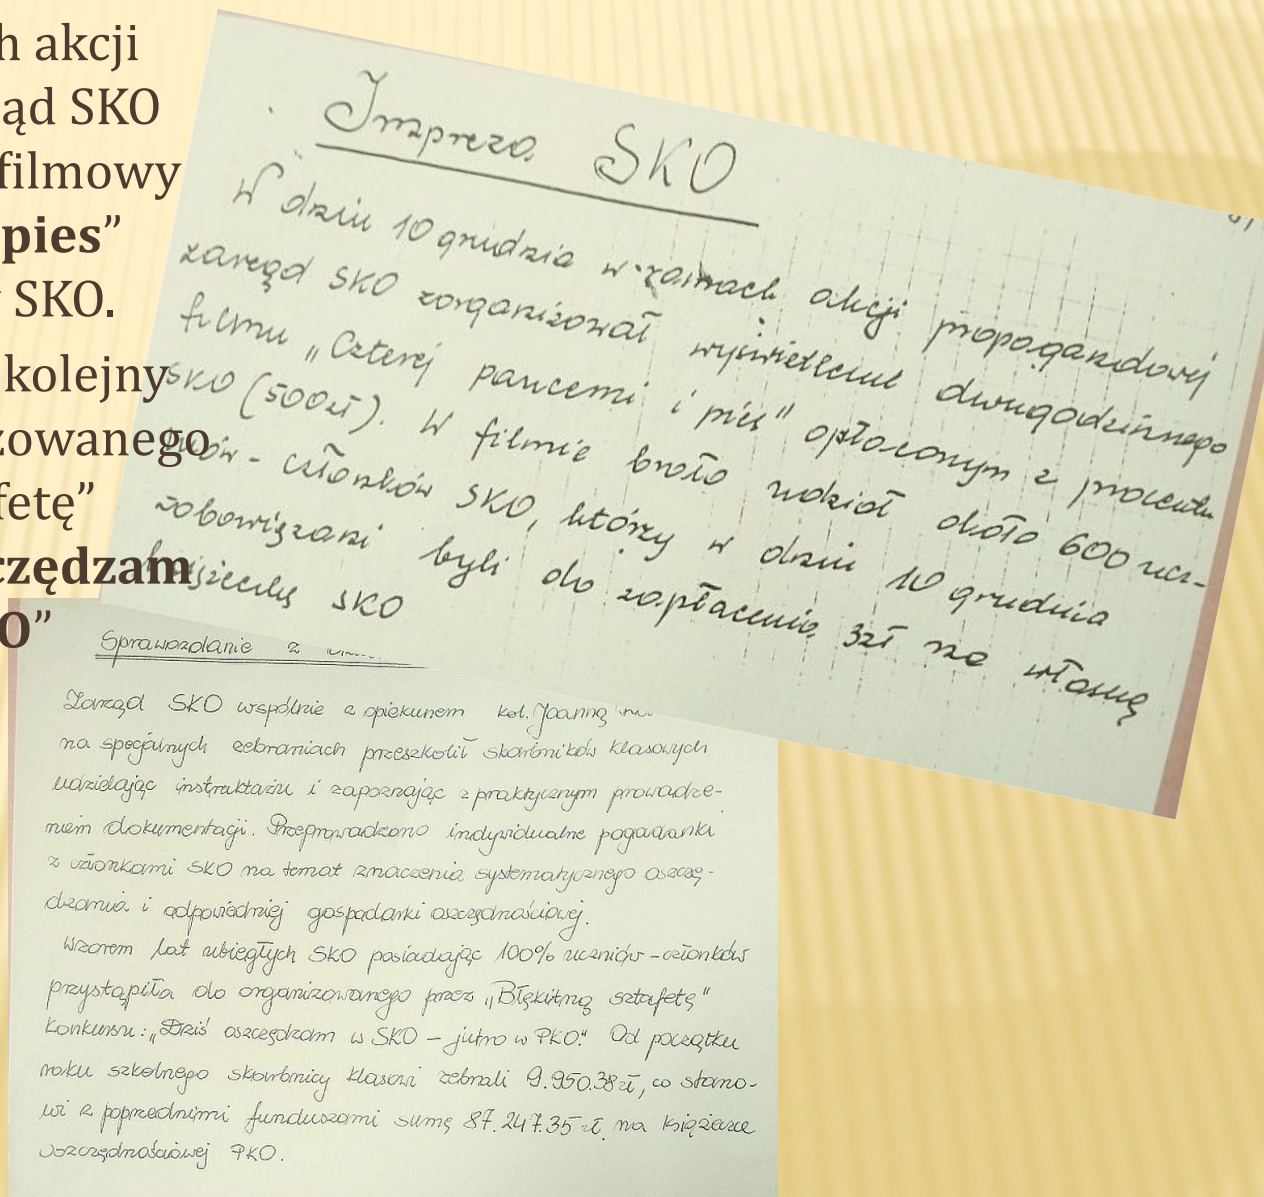 h akcji
ąd SKO
filmowy
pies”
SKO.
kolejny
zowanego
fetę”
czędzam
O”
Impreza SKO
W dniu 10 grudzia w ramach akcji propagandowej
zarząd SKO zorganizował wyświetlenie dwugodzinnego
filmu „Czterej pancerni i pies" opłaconym z procentu
SKO (500zł). W filmie brało udział około 600 ucz-
niów - członków SKO, którzy w dniu 10 grudnia
zobowiązani byli do zapłacenia 3zł na własną
książeczkę SKO
Sprawozdanie z
Zarząd SKO wspólnie z opiekunem kol. Joanną
na specjalnych zebraniach przeszkolił skarbników klasowych
udzielając instruktażu i zapoznając z praktycznym prowadze-
niem dokumentacji. Przeprowadzono indywidualne pogadanki
z członkami SKO na temat znaczenia systematycznego oszczę-
dzania i odpowiedniej gospodarki oszczędnościowej.
Wzorem lat ubiegłych SKO posiadając 100% uczniów - członków
przystąpiła do organizowanego przez „Błękitną sztafetę"
konkursu: „Dziś oszczędzam w SKO - jutro w PKO." Od początku
roku szkolnego skarbnicy klasowi zebrali 9.950.38 zł, co stano-
wi z poprzednimi funduszami sumę 87.247.35 zł. na książeczce
oszczędnościowej PKO.